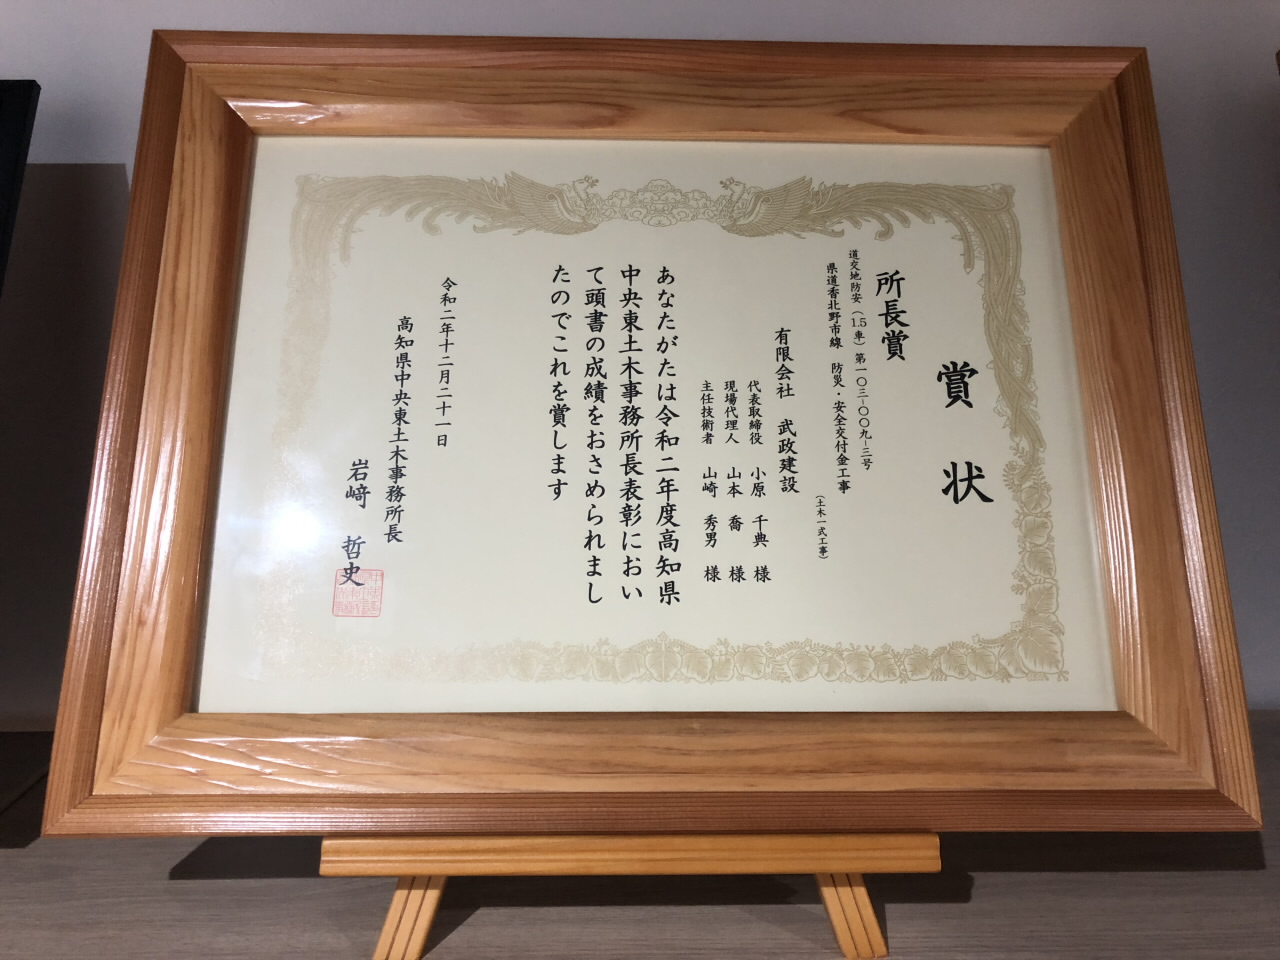 賞状
所長賞
道交地防安（1.5車）第一〇三-〇〇九-三号
県道香北野市線　防災・安全交付金工事
（土木一式工事）
有限会社　武政建設
代表取締役　小原　千典　様
現場代理人　山本　喬　様
主任技術者　山崎　秀男　様
あなたがたは令和二年度高知県
中央東土木事務所長表彰におい
て頭書の成績をおさめられまし
たのでこれを賞します
令和二年十二月二十一日
高知県中央東土木事務所長
岩﨑　哲史